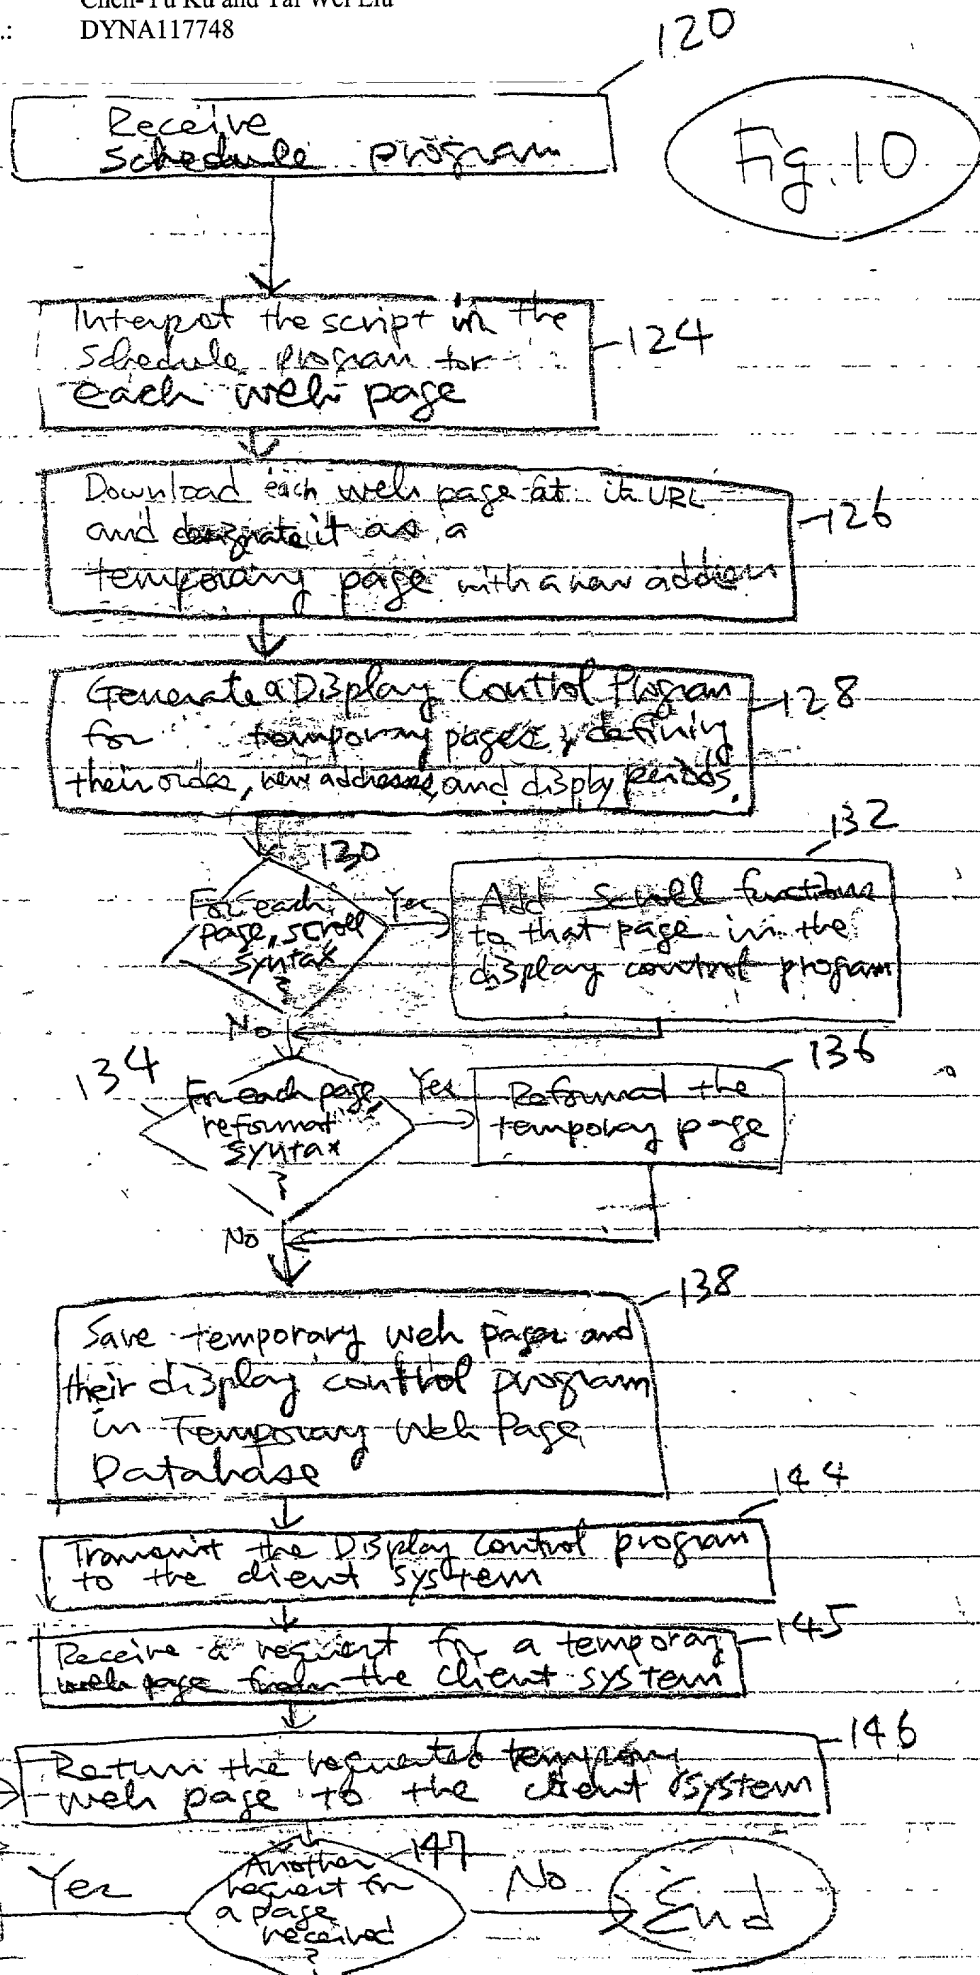 Chen-Yu Ku and Tai Wei Liu
.: DYNA117748
120
Receive
schedule program
Fig. 10
Interpret the script in the
schedule program for
each web page
124
Download each web page at its URL
and designate it as a
temporary page with a new address
126
Generate a Display Control Program
for temporary pages, defining
their order, new addresses, and display periods.
128
130
For each
page, scroll
syntax
?
Yes
132
Add scroll functions
to that page in the
display control program
No
134
For each page,
reformat
syntax
?
Yes
136
Reformat the
temporary page
No
138
Save temporary web pages and
their display control program
in Temporary Web Page
Database
144
Transmit the Display Control program
to the client system
145
Receive a request for a temporary
web page from the client system
146
Return the requested temporary
web page to the client system
147
Another
request for
a page
received
?
Yes
No
End